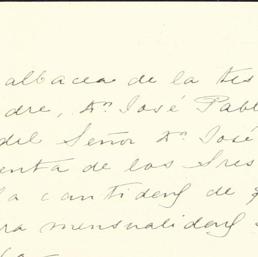 albacea de la tes
dre, Dn José Pabl
del Señor Dn José
enta de los Sres
la cantidad de
ra mensualidad